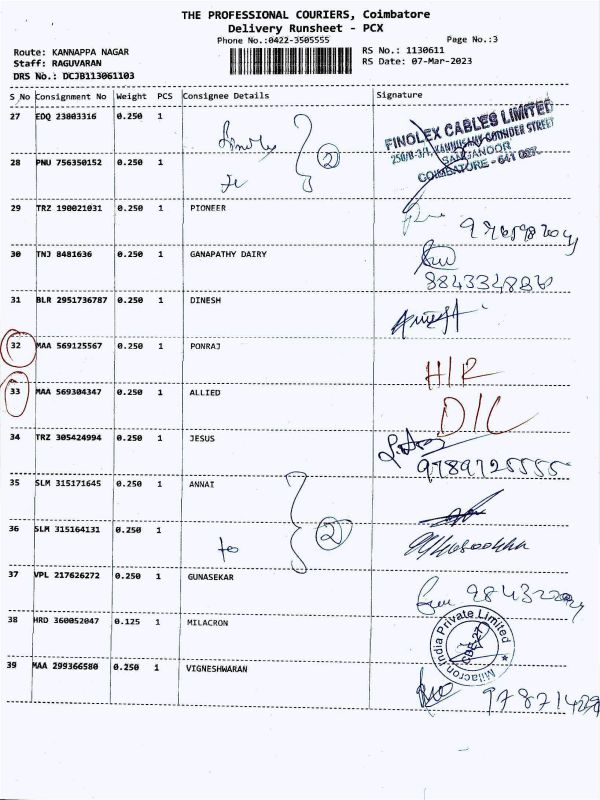 THE PROFESSIONAL COURIERS, Coimbatore
Delivery Runsheet - PCX
Phone No.:0422-3505555
Page No.:3
Route: KANNAPPA NAGAR
RS No.: 1130611
Staff: RAGUVARAN
RS Date: 07-Mar-2023
DRS No.: DCJB113061103
S No Consignment No Weight PCS Consignee Details Signature
27 EDQ 23803316 0.250 1
FINOLEX CABLES LIMITED
SANGANOOR
2
28 PNU 756350152 0.250 1
29 TRZ 190021031 0.250 1 PIONEER
30 TNJ 8481636 0.250 1 GANAPATHY DAIRY
31 BLR 2951736787 0.250 1 DINESH
32 MAA 569125567 0.250 1 PONRAJ
H/R
33 MAA 569304347 0.250 1 ALLIED
D/C
34 TRZ 305424994 0.250 1 JESUS
9789725555
35 SLM 315171645 0.250 1 ANNAI
2
36 SLM 315164131 0.250 1
37 VPL 217626272 0.250 1 GUNASEKAR
38 HRD 360052047 0.125 1 MILACRON
Milacron India Private Limited
CBE-27
39 MAA 299366580 0.250 1 VIGNESHWARAN